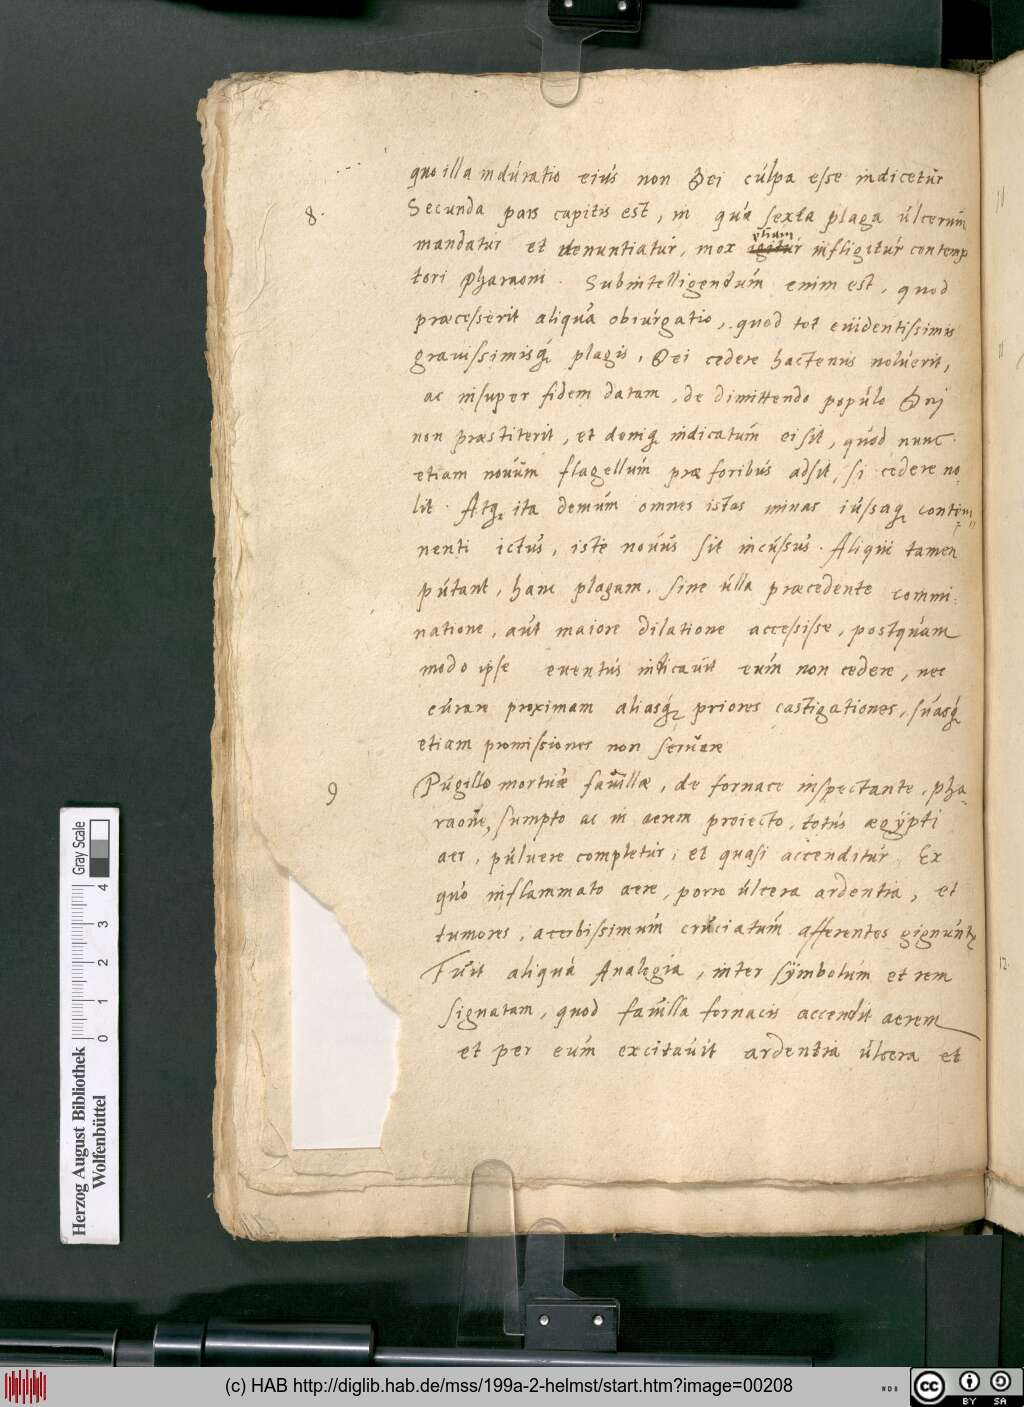 quo illa induratio eius non Dei culpa esse indicetur
8. Secunda pars capitis est, in qua sexta plaga ulcerum
etiam
mandatur et denuntiatur, mox igitur infligitur contemp
tori Pharaoni. Subintelligendum enim est, quod
præcesserit aliqua obiurgatio, quod tot euidentissimis
grauissimisq́; plagis, Dei cedere hactenus noluerit,
ac insuper fidem datam, de dimittendo populo Dei
non præstiterit, et deniq; indicatum ei sit, quod nunc
etiam nouum flagellum præ foribus adsit, si cedere no
lit. Atq; ita demum omnes istas minas iussaq; contem
nenti ictus, iste nouus sit incussus. Aliqui tamen
putant, hanc plagam, sine ulla præcedente commi
natione, aut maiore dilatione accessisse, postquam
modo ipse euentus indicauit eum non cedere, nec
curare proximam aliasq́; priores castigationes, suasq́;
etiam promissiones non seruare
9 Pugillo mortuæ fauillæ, de fornace inspectante, Pha
raone, sumpto ac in aerem proiecto, totus ægypti
aer, puluere completur, et quasi accenditur. Ex
quo inflammato aere, porro ulcera ardentia, et
tumores, acerbissimum cruciatum afferentes gignunt
Fuit aliqua Analogia, inter symbolum et rem
signatam, quod fauilla fornacis accendit aerem
et per eum excitauit ardentia ulcera et
12.
Herzog August Bibliothek
Wolfenbüttel
0 1 2 3 4
Gray Scale
(c) HAB http://diglib.hab.de/mss/199a-2-helmst/start.htm?image=00208
cc BY SA